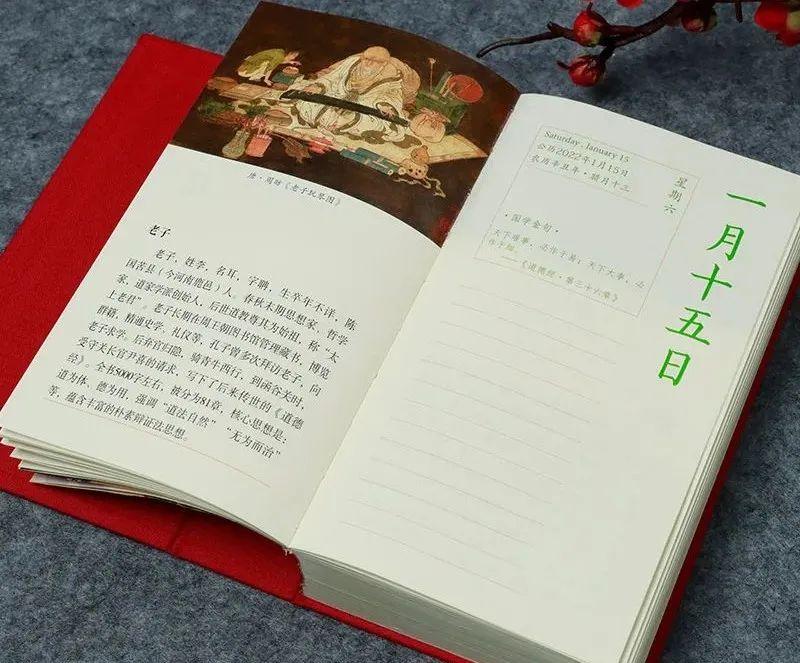 唐·周昉《老子玩琴图》
老子
老子，姓李，名耳，字聃，生卒年不详，陈
国苦县（今河南鹿邑）人。春秋末期思想家、哲学
家，道家学派创始人，后世道教尊其为始祖，称“太
上老君”。老子长期在周王朝图书馆管理藏书，博览
群籍，精通史学、礼仪等，孔子曾多次拜访老子，向
老子求学。后弃官归隐，骑青牛西行，到函谷关时，
受守关长官尹喜的请求，写下了后来传世的《道德
经》。全书5000字左右，被分为81章，核心思想是：
道为体、德为用，强调“道法自然”“无为而治”
等，蕴含丰富的朴素辩证法思想。
Saturday, January 15
公历2022年1月15日
农历辛丑年·腊月十三
星期六
·国学金句·
天下难事，必作于易；天下大事，必
作于细
——《道德经·第三十六章》
一月十五日